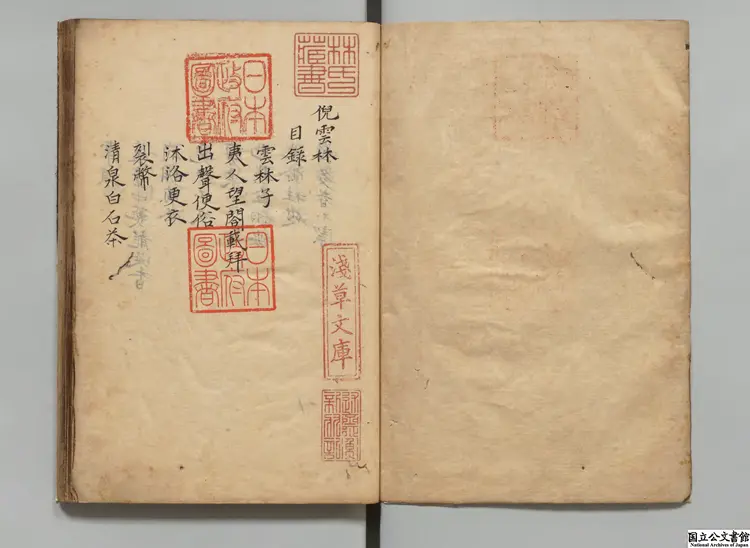 林氏藏書
倪雲林
目錄
雲林子
夷人望閣載拜
出聲便俗
沐浴更衣
裂幣
清泉白石茶
日本政府圖書
日本政府圖書
淺草文庫
国立公文書館
National Archives of Japan